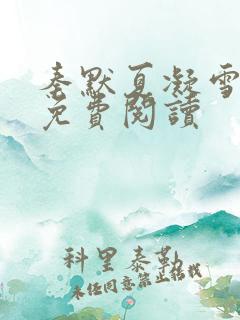 秦默夏凝雪
免費閱讀
科里泰勒
未經同意禁止轉載